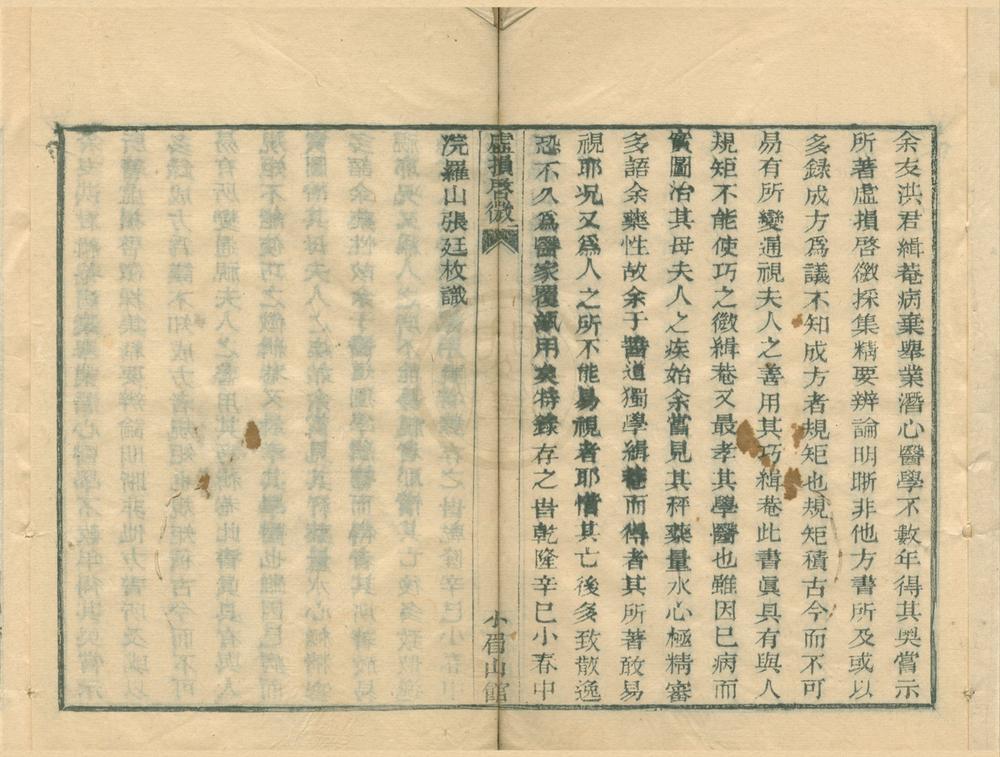 余友洪君緝菴病棄舉業潛心醫學不數年得其奧嘗示
所著虛損啓微採集精要辨論明晰非他方書所及或以
多録成方爲議不知成方者規矩也規矩積古今而不可
易有所變通視夫人之善用其巧緝菴此書眞具有與人
規矩不能使巧之微緝菴又最孝其學醫也雖因已病而
實圖治其母夫人之疾始余嘗見其秤藥量水心極精審
多語余藥性故余于醫道獨學緝菴而得者其所著敢易
視耶况又爲人之所不能易視者耶惜其亡後多致散逸
恐不久爲醫家覆瓿用矣特錄存之旹乾隆辛巳小春中
浣羅山張廷枚識
虛損啓微
小眉山館